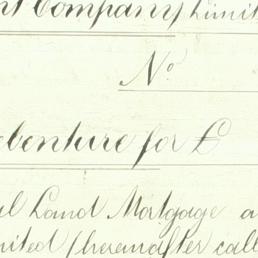 Company Limit
No
ebenture for £
Land Mortgage a
(hereafter call